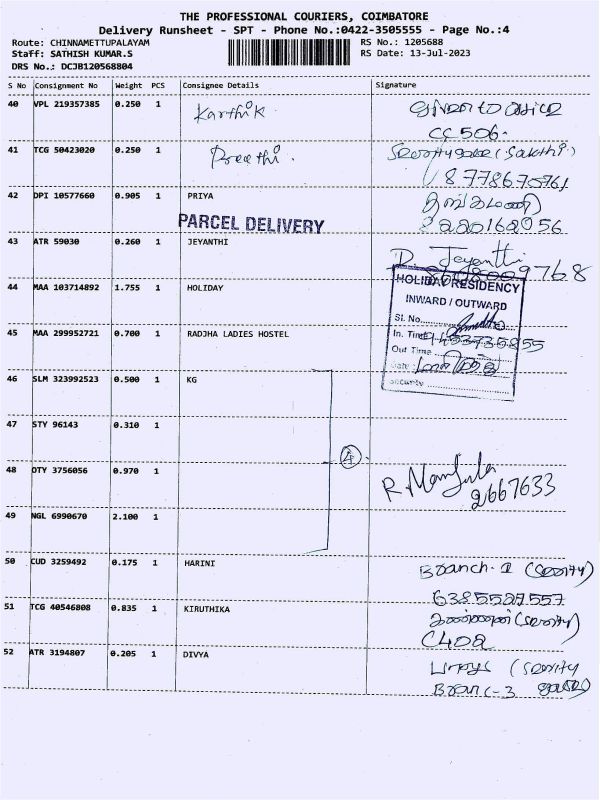 THE PROFESSIONAL COURIERS, COIMBATORE
Delivery Runsheet - SPT - Phone No.:0422-3505555 - Page No.:4
Route: CHINNAMETTUPALAYAM RS No.: 1205688
Staff: SATHISH KUMAR.S RS Date: 13-Jul-2023
DRS No.: DCJB120568804
S No Consignment No Weight PCS Consignee Details Signature
40 VPL 219357385 0.250 1 Karthik Given to office
CC 506.
41 TCG 50423020 0.250 1 Preethi. (Sakthi)
8778670761
42 DPI 10577660 0.905 1 PRIYA
PARCEL DELIVERY
43 ATR 59030 0.260 1 JEYANTHI Jeyanthi
44 MAA 103714892 1.755 1 HOLIDAY
HOLIDAY RESIDENCY
INWARD / OUTWARD
Sl. No.
45 MAA 299952721 0.700 1 RADJHA LADIES HOSTEL In. Time
Out Time
Date
Security
46 SLM 323992523 0.500 1 KG
47 STY 96143 0.310 1
4
48 OTY 3756056 0.970 1 R. Manjula
2667633
49 NGL 6990670 2.100 1
50 CUD 3259492 0.175 1 HARINI Branch-2
6385527557
51 TCG 40546808 0.835 1 KIRUTHIKA
C402
52 ATR 3194807 0.205 1 DIVYA